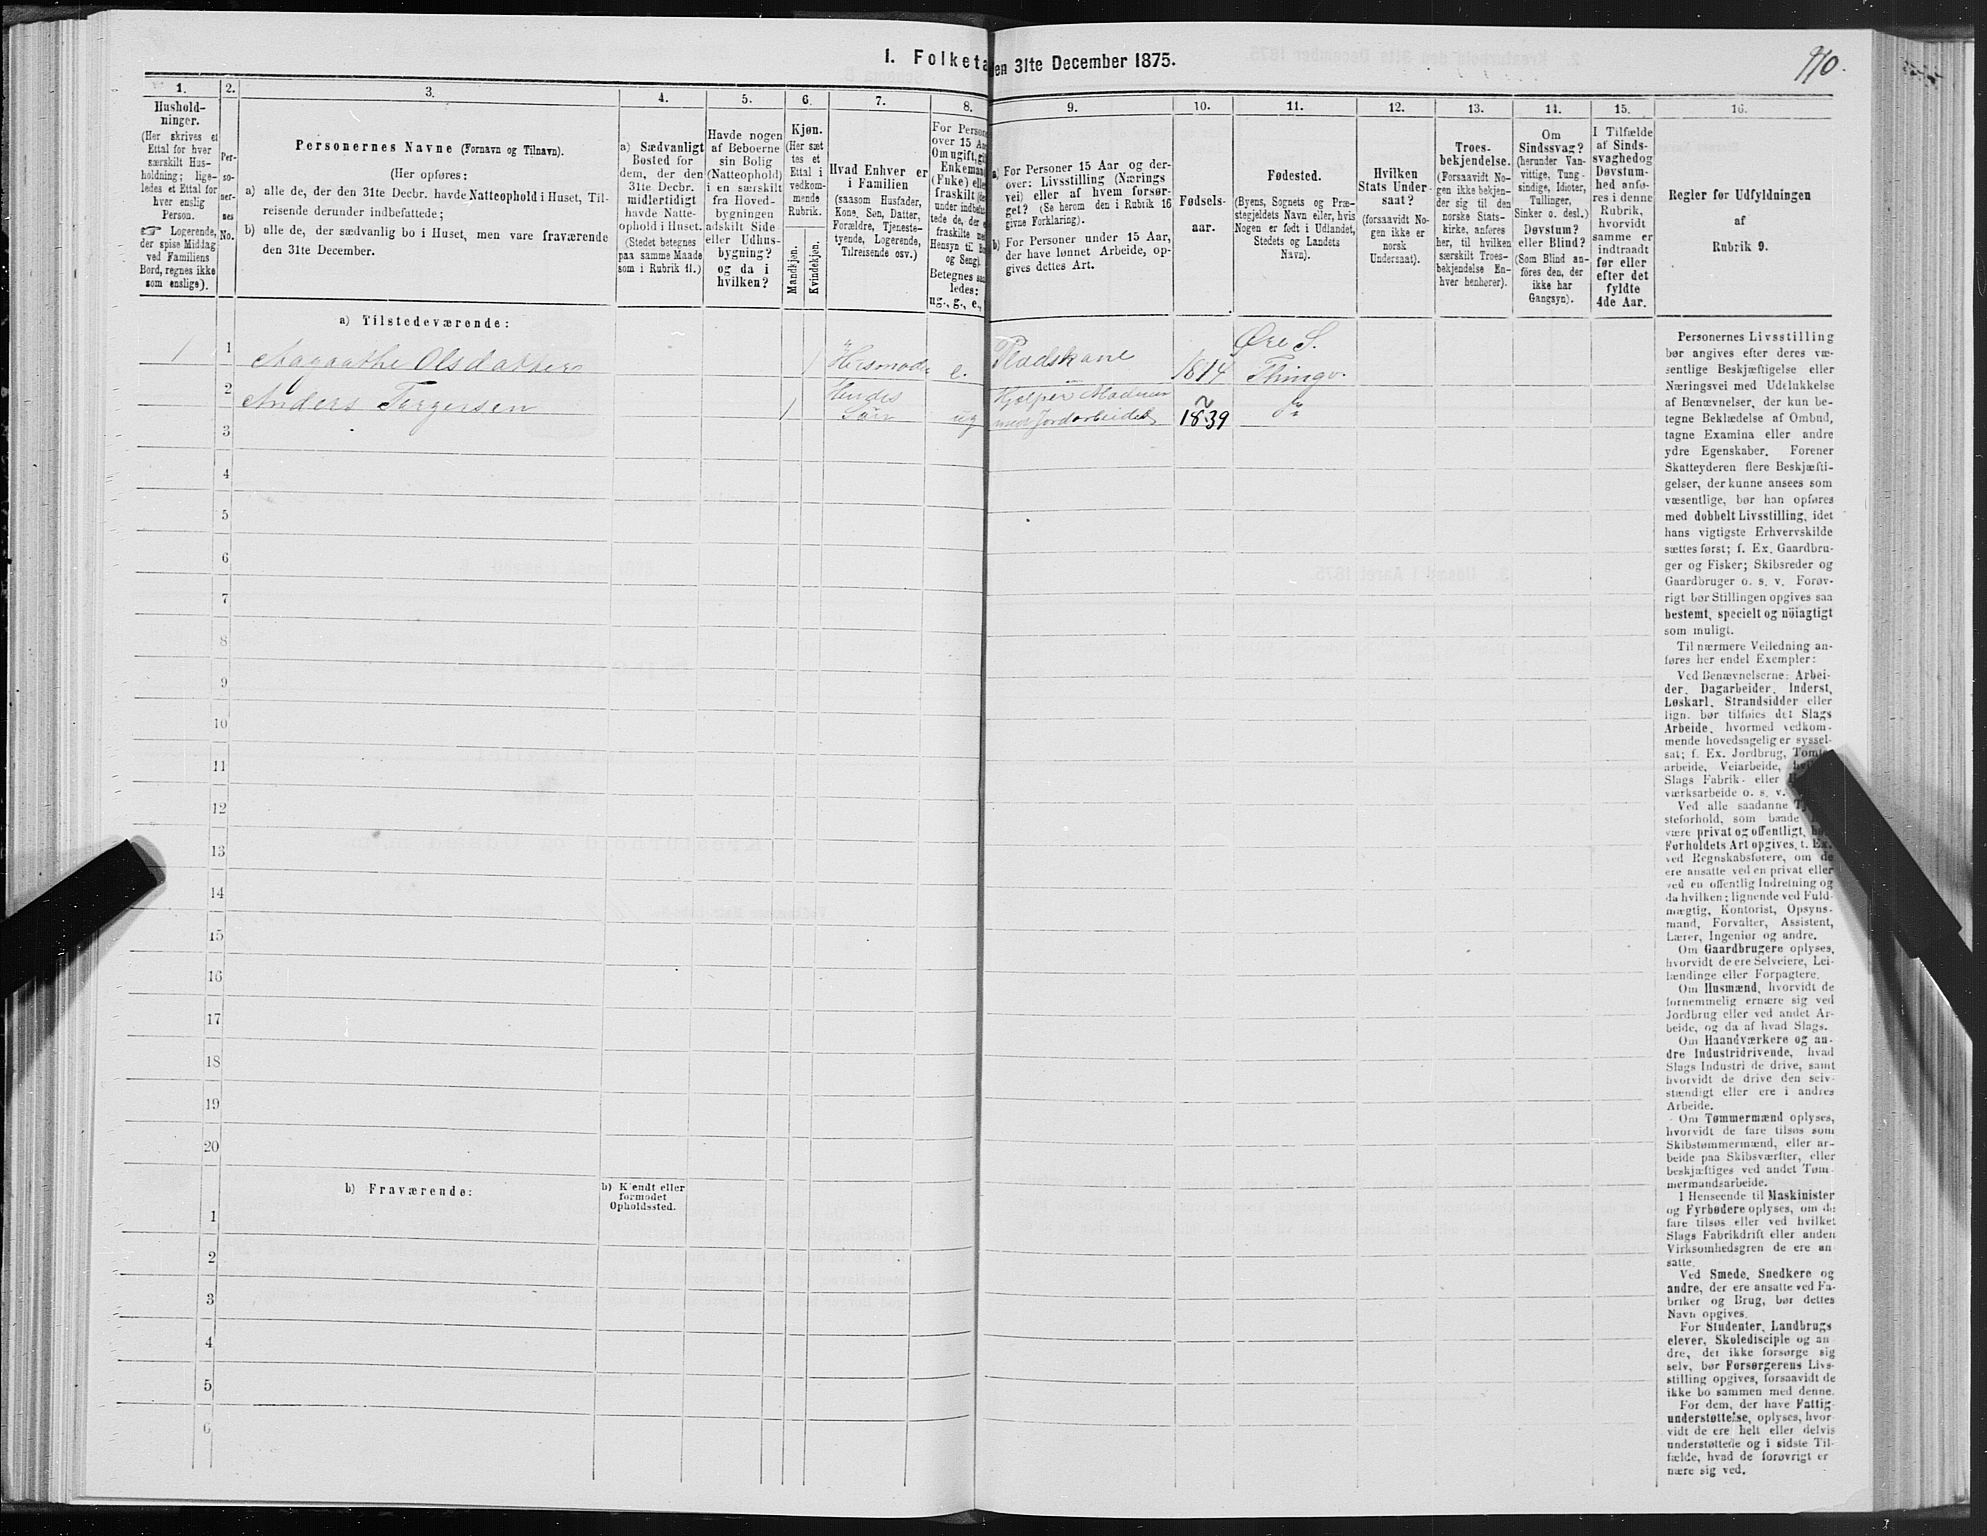 1. Folketa
en 31te December 1875.
1.
2.
3.
4.
5.
6.
7.
8.
9.
10.
11.
12.
13.
14.
15.
16.
Hushold-
ninger.
(Her skrives et
Ettal for hver
særskilt Hus-
holdning; lige-
ledes et Ettal for
hver enslig
Person.
☞ Logerende,
der spise Middag
ved Familiens
Bord, regnes ikke
som enslige).
Per-
so-
ner-
nes
No.
Personernes Navne (Fornavn og Tilnavn).
(Her opføres:
a) alle de, der den 31te Decbr. havde Natteophold i Huset, Til-
reisende derunder indbefattede;
b) alle de, der sædvanlig bo i Huset, men vare fraværende
den 31te December.
a) Sædvanligt
Bosted for
dem, der den
31te Decbr.
midlertidigt
havde Natte-
ophold i Huset.
(Stedet betegnes
paa samme Maade
som i Rubrik 11.)
Havde nogen
af Beboerne
sin Bolig
(Natteophold)
i en særskilt
fra Hoved-
bygningen
adskilt Side
eller Udhus-
bygning?
og da i
hvilken?
Kjøn.
(Her sæt
tes et
Ettal i
vedkom-
mende
Rubrik.
Mandkjøn.
Kvindekjøn.
Hvad Enhver er
i Familien
(saasom Husfader,
Kone, Søn, Datter,
Forældre, Tjeneste-
tyende, Logerende,
Tilreisende osv.)
For Person
over 15 Aar
Om ugift, gif
Enkeman
(Fuke) elle
fraskilt (de
under indbefa
tede de, der e
fraskilte me
Hensyn til Bo
og Seng).
Betegnes saa
ledes:
ug., g., e.,
a) For Personer 15 Aar og der-
over: Livsstilling (Nærings
vei) eller af hvem forsør-
get? (Se herom den i Rubrik 16
givne Forklaring).
b) For Personer under 15 Aar,
der have lønnet Arbeide, op-
gives dettes Art.
Fødsels-
aar.
Fødested.
(Byens, Sognets og Præ-
stegjeldets Navn eller, hvis
Nogen er født i Udlandet,
Stedets og Landets
Navn).
Hvilken
Stats Under-
saat?
(forsaavidt No-
gen ikke er
norsk
Undersaat).
Troes-
bekjendelse.
(Forsaavidt No-
gen ikke bekjen-
der sig til den
norske Stats-
kirke, anføres
her, til hvilken
særskilt Troes-
bekjendelse En-
hver henhører).
Om
Sindssvag?
(herunder Van-
vittige, Tung-
sindige, Idioter,
Tullinger,
Sinker o. desl.)
Døvstum?
eller Blind?
(Som Blind an-
føres den, der
ikke har
Gangsyn).
I Tilfælde
af Sinds-
svaghed og
Døvstum-
hed anfø-
res i denne
Rubrik,
hvorvidt
samme er
indtraadt
før eller
efter det
fyldte
4de Aar.
Regler for Udfyldningen
af
Rubrik 9.
a) Tilstedeværende:
1 1 Aagaathe Olsdatter 1 Husmoder e. Pladskone 1814 Øre S. Thingv.
2 Anders Torgersen 1 Hendes Søn ug Hjelper Moderen med Jordarbeidet 1839 do
3
4
5
6
7
8
9
10
11
12
13
14
15
16
17
18
19
20
b) Fraværende:
b) Kjendt eller
formodet
Opholdssted.
1
2
3
4
5
6
Personernes Livsstilling
bør angives efter deres væ-
sentlige Beskjæftigelse eller
Næringsvei med Udelukkelse
af Benævnelser, der kun be-
tegne Beklædelse af Ombud,
tagne Examina eller andre
ydre Egenskaber. Forener
Skatteyderen flere Beskjæfti-
gelser, der kunne ansees som
væsentlige, bør han opføres
med dobbelt Livsstilling, idet
hans vigtigste Erhvervskilde
sættes først; f. Ex. Gaardbru-
ger og Fisker; Skibsreder og
Gaardbruger o. s. v. Forøv-
rigt bør Stillingen opgives saa
bestemt, specielt og nöiagtigt
som muligt.
Til nærmere Veiledning an-
føres her endel Exempler:
Ved Benævnelserne: Arbei-
der, Dagarbeider, Inderst,
Løskarl, Strandsidder eller
lign. bør tilføies det Slags
Arbeide, hvormed vedkom-
mende hovedsagelig er syssel-
sat; f. Ex. Jordbrug, Tomte-
arbeide, Veiarbeide,
Slags Fabrik- eller
værksarbeide o. s. v.
Ved alle saadanne
steforhold, som baade
være privat og offentlig,
Forholdets Art opgives, f. Ex.
ved Regnskabsførere, om de
ere ansatte ved en privat eller
ved en offentlig Indretning og
da hvilken; lignende ved Fuld-
mægtig, Kontorist, Opsyns-
mand, Forvalter, Assistent,
Lærer, Ingeniør og andre.
Om Gaardbrugere oplyses,
hvorvidt de ere Selveiere, Lei-
lændinge eller Forpagtere.
Om Husmænd, hvorvidt de
fornemmelig ernære sig ved
Jordbrug eller ved andet Ar-
beide, og da af hvad Slags.
Om Haandværkere og an-
dre Industridrivende, hvad
Slags Industri de drive, samt
hvorvidt de drive den selv-
stændigt eller ere i andres
Arbeide.
Om Tømmermænd oplyses,
hvorvidt de fare tilsøs som
Skibstømmermænd, eller ar-
beide paa Skibsværfter, eller
beskjæftiges ved andet Tøm-
mermandsarbeide.
I Henseende til Maskinister
og Fyrbødere oplyses, om de
fare tilsøs eller ved hvilket
Slags Fabrikdrift eller anden
Virksomhedsgren de ere an-
satte.
Ved Smede, Snedkere og
andre, der ere ansatte ved Fa-
briker og Brug, bør dettes
Navn opgives.
For Studenter, Landbrugs
elever, Skoledisciple og an
dre, der ikke forsørge sig
selv, bør Forsørgerens Livs-
stilling opgives, forsaavidt de
ikke bo sammen med denne.
For dem, der have Fattig-
understøttelse, oplyses, hvor-
vidt de ere helt eller delvis
understøttede og i sidste Til-
fælde, hvad de forøvrigt er
nære sig ved.